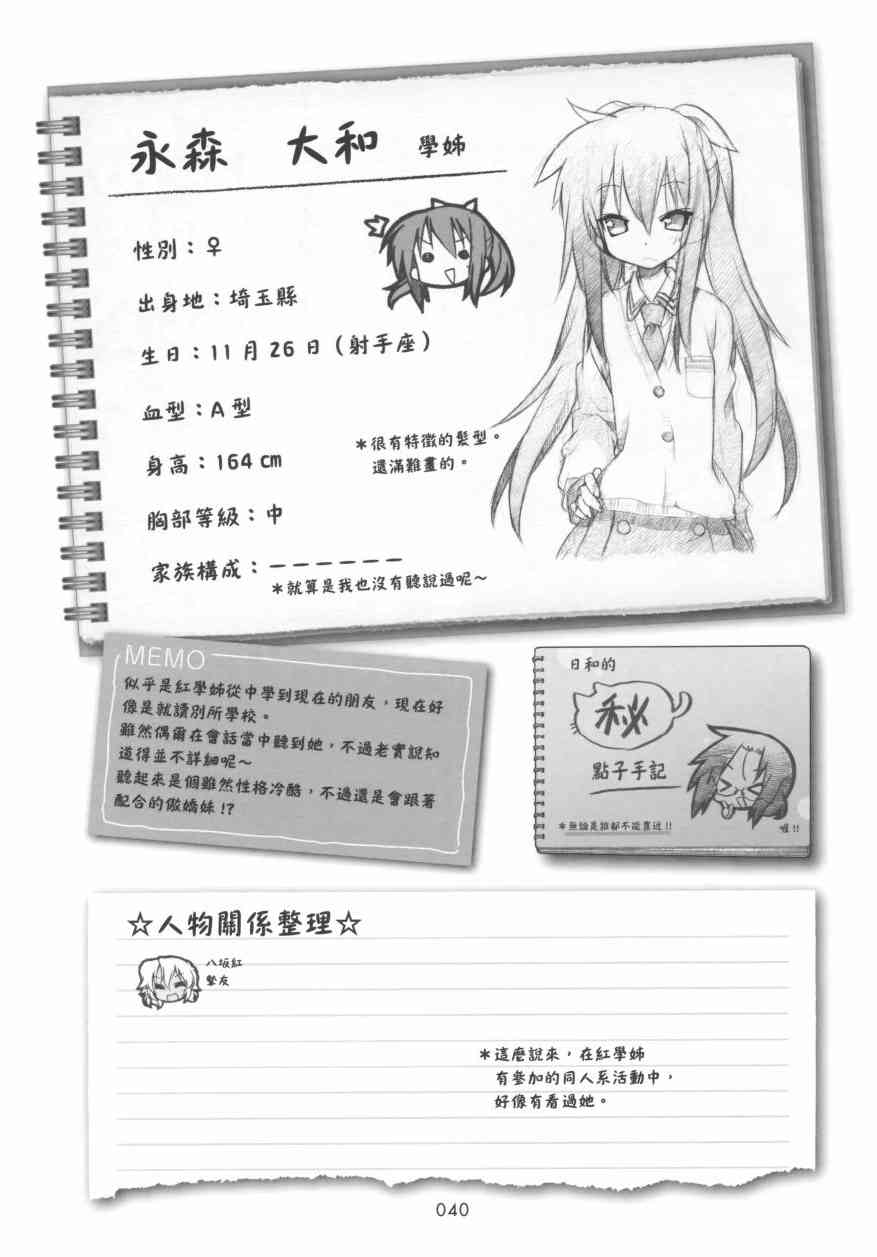 永森　大和　學姊
性別：♀
出身地：埼玉縣
生日：11月26日（射手座）
血型：A型
身高：164cm
胸部等級：中
家族構成：——————
＊就算是我也沒有聽說過呢～
＊很有特徵的髮型。
還滿難畫的。
MEMO
似乎是紅學姊從中學到現在的朋友，現在好
像是就讀別所學校。
雖然偶爾在會話當中聽到她，不過老實說知
道得並不詳細呢～
聽起來是個雖然性格冷酷，不過還是會跟著
配合的傲嬌妹!?
日和的
秘
點子手記
＊無論是誰都不能靠近!!
喔!!
☆人物關係整理☆
八坂紅
摯友
＊這麼說來，在紅學姊
有參加的同人系活動中，
好像有看過她。
040